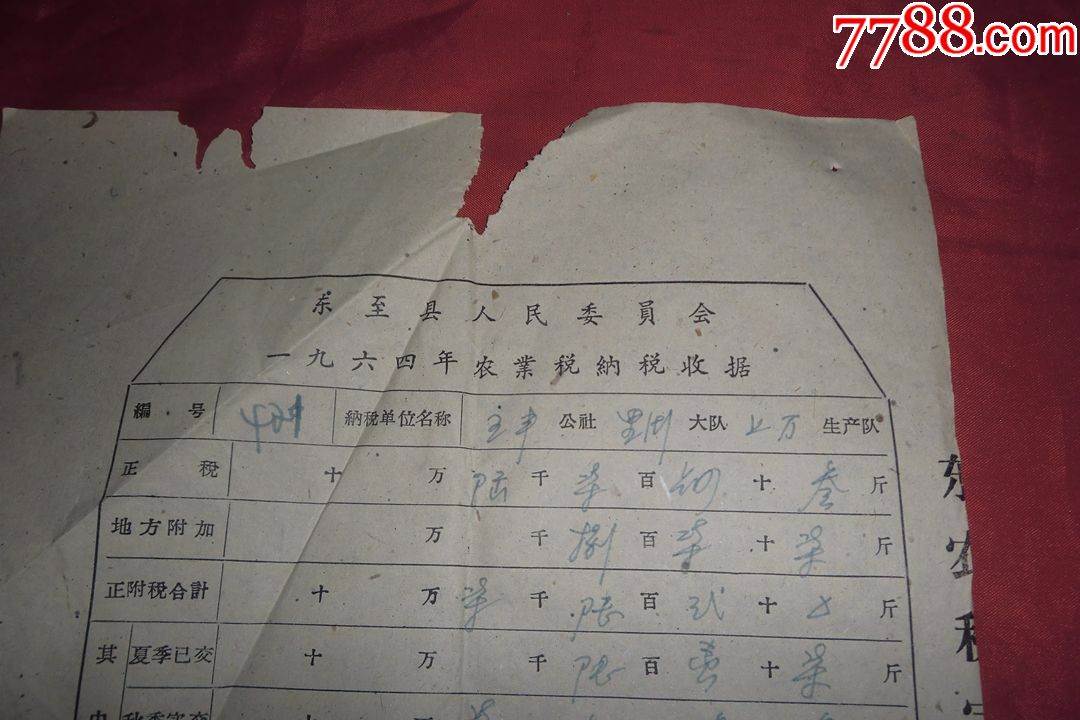 7788.com
东至县人民委員会
一九六四年农業税納税收据
編号 納税单位名称 主丰 公社 大队 上万 生产队
正税 十 万 陆 千 柒 百 十 叁 斤
地方附加 万 千 捌 百 柒 十 柒 斤
正附税合計 十 万 柒 千 陆 百 弐 十 斤
其 夏季已交 十 万 千 陆 百 壹 十 柒 斤